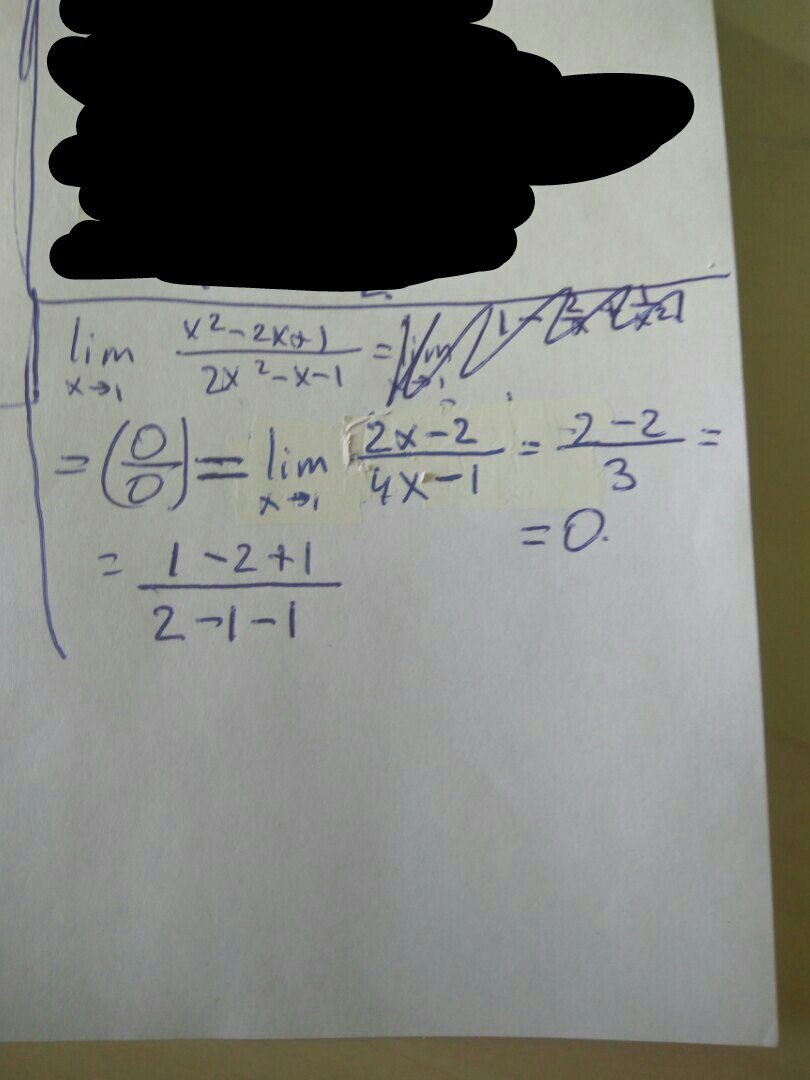 lim x→1 x²-2x+1 / 2x²-x-1 = lim x→1 1 - 2/x
= (0/0) = lim x→1 2x-2 / 4x-1 = 2-2 / 3 =
= 0.
= 1-2+1 / 2-1-1